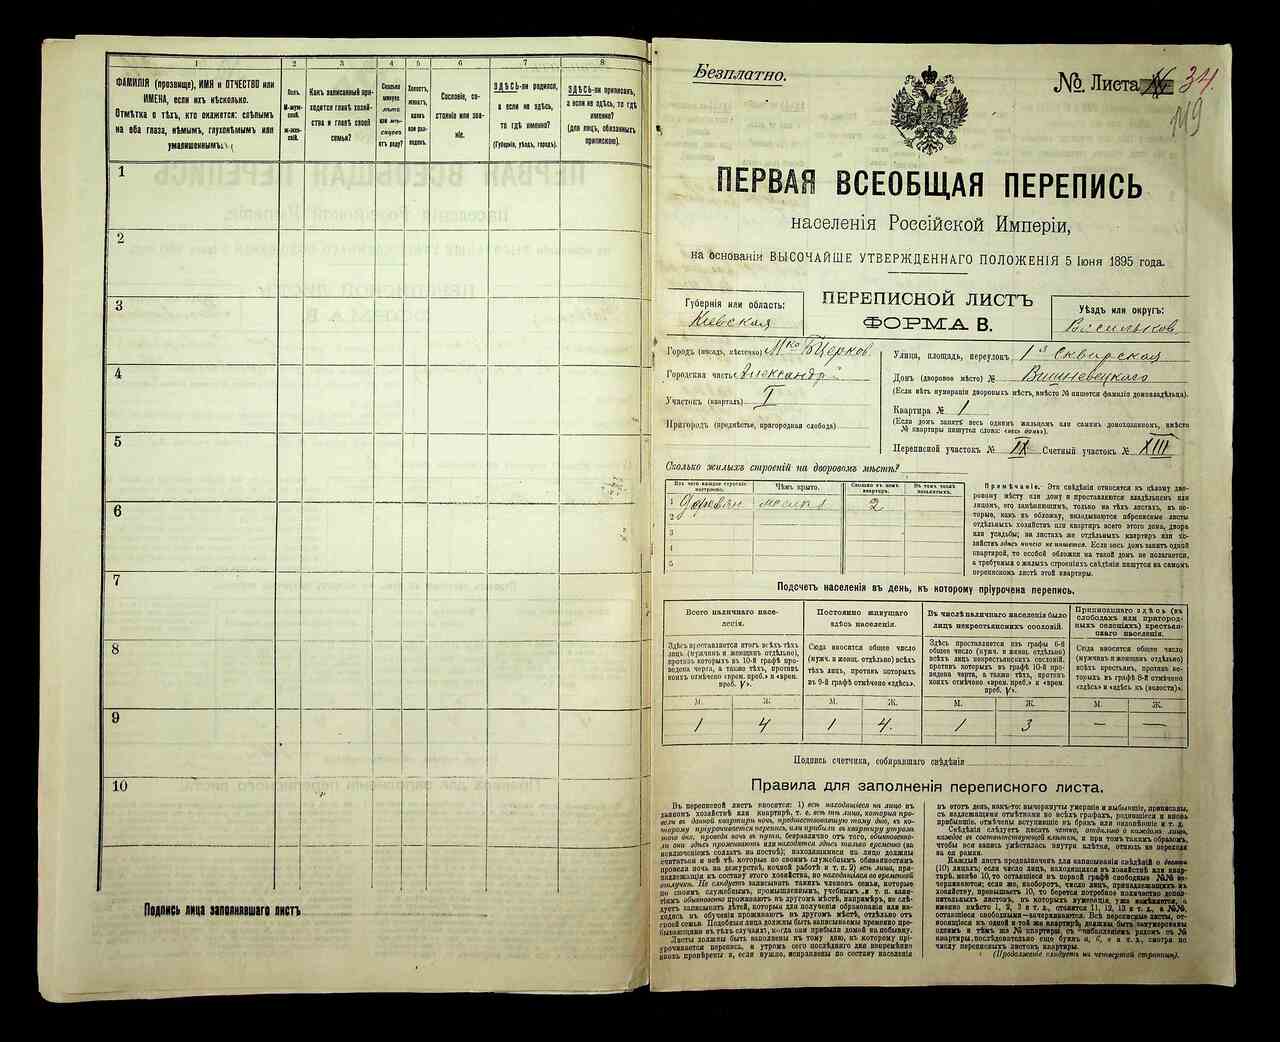 1 2 3 4 5 6 7 8
ФАМИЛІЯ (прозвище), ИМЯ и ОТЧЕСТВО или
ИМЕНА, если ихъ нѣсколько.
Отмѣтка о тѣхъ, кто окажется: слѣпымъ
на оба глаза, нѣмымъ, глухонѣмымъ или
умалишеннымъ.
Полъ.
М-муж-
ской.
Ж-жен-
скій.
Какъ записанный при-
ходится главѣ хозяй-
ства и главѣ своей
семьи?
Сколько
минуло
лѣтъ
или мѣ-
сяцевъ
отъ роду?
Холостъ,
женатъ,
вдовъ
или раз-
веденъ.
Сословіе, со-
стояніе или зва-
ніе.
ЗДѢСЬ-ли родился,
а если не здѣсь,
то гдѣ именно?
(Губернія, уѣздъ, городъ).
ЗДѢСЬ-ли приписанъ,
а если не здѣсь, то гдѣ
именно?
(для лицъ, обязанныхъ
припискою).
1
2
3
4
5
6
7
8
9
10
Подпись лица заполнявшаго листъ
Безплатно.
№ Листа 34.
119
ПЕРВАЯ ВСЕОБЩАЯ ПЕРЕПИСЬ
населенія Россійской Имперіи,
на основаніи ВЫСОЧАЙШЕ УТВЕРЖДЕННАГО ПОЛОЖЕНІЯ 5 Іюня 1895 года.
Губернія или область:
Кіевская
ПЕРЕПИСНОЙ ЛИСТЪ
ФОРМА В.
Уѣздъ или округъ:
Васильков
Городъ (посадъ, мѣстечко) М-ко БЦерков
Городская часть Александр
Участокъ (кварталъ) I
Пригородъ (предмѣстье, пригородная слобода)
Улица, площадь, переулокъ 1я Сквирская
Домъ (дворовое мѣсто) № Вишневецкого
(Если нѣтъ нумераціи дворовыхъ мѣстъ, вмѣсто № пишется фамилія домовладѣльца).
Квартира № 1
(Если домъ занятъ весь однимъ жильцомъ или самимъ домохозяиномъ, вмѣсто
№ квартиры пишутся слова: «весь домъ»).
Переписной участокъ № IX Счетный участокъ № XIII
Сколько жилыхъ строеній на дворовомъ мѣстѣ?
Изъ чего каждое строеніе
построено.
Чѣмъ крыто.
Сколько въ домѣ
квартиръ.
Въ томъ числѣ
1 Деревян 2
2
3
4
5
Примѣчаніе. Эти свѣдѣнія относятся къ цѣлому дво-
ровому мѣсту или дому и проставляются владѣльцемъ или
лицомъ, его замѣняющимъ, только на тѣхъ листахъ, въ ко-
торые, какъ въ обложку, вкладываются переписные листы
отдѣльныхъ хозяйствъ или квартиръ всего этого дома, двора
или усадьбы; на листахъ же отдѣльныхъ квартиръ или хо-
зяйствъ здѣсь ничего не пишется. Если весь домъ занятъ одной
квартирой, то особой обложки на такой домъ не полагается,
а требуемыя о жилыхъ строеніяхъ свѣдѣнія пишутся на самомъ
переписномъ листѣ этой квартиры.
Подсчетъ населенія въ день, къ которому пріурочена перепись.
Всего наличнаго насе-
ленія.
Постоянно живущаго
здѣсь населенія.
Въ числѣ наличнаго населенія было
лицъ некрестьянскихъ сословій.
Приписаннаго здѣсь (въ
слободахъ или пригород-
ныхъ селеніяхъ) крестьян-
скаго населенія.
Здѣсь проставляется итогъ всѣхъ тѣхъ
лицъ (мужчинъ и женщинъ отдѣльно),
противъ которыхъ въ 10-й графѣ про-
ведена черта, а также тѣхъ, противъ
коихъ отмѣчено «врем. преб.» и «врем.
преб. V».
Сюда вносится общее число
(мужч. и женщ. отдѣльно) всѣхъ
тѣхъ лицъ, противъ которыхъ
въ 9-й графѣ отмѣчено «здѣсь».
Здѣсь проставляется изъ графы 6-й
общее число (мужч. и женщ. отдѣльно)
всѣхъ лицъ некрестьянскихъ сословій,
противъ которыхъ въ графѣ 10-й про-
ведена черта, а также тѣхъ, противъ
коихъ отмѣчено «врем. преб.» и «врем.
преб. V».
Сюда вносится общее число
(мужчинъ и женщинъ отдѣльно)
всѣхъ крестьянъ, противъ ко-
торыхъ въ графѣ 8-й отмѣчено
«здѣсь» и «здѣсь къ (волости)».
М. Ж. М. Ж. М. Ж. М. Ж.
1 4 1 4. 1 3 — —
Подпись счетчика, собиравшаго свѣдѣнія
Правила для заполненія переписного листа.
Въ переписной листъ вносятся: 1) всѣ находящіеся на лицо въ
данномъ хозяйствѣ или квартирѣ, т. е. всѣ тѣ лица, которыя про-
вели въ данной квартирѣ ночь, предшествовавшую тому дню, къ ко-
торому пріурочивается перепись, или прибыли въ квартиру утромъ
этого дня, проведя ночь въ пути, безразлично отъ того, обыкновенно-
ли они здѣсь проживаютъ или находятся здѣсь только временно (за
исключеніемъ солдатъ на постоѣ); находящимися на лицо должны
считаться и всѣ тѣ, которые по своимъ служебнымъ обязанностямъ
провели ночь на дежурствѣ, ночной работѣ и т. п. 2) всѣ лица, при-
надлежащія къ составу этого хозяйства, но находящіяся во временной
отлучкѣ. Не слѣдуетъ записывать такихъ членовъ семьи, которые
по своимъ служебнымъ, промышленнымъ, учебнымъ и т. п. заня-
тіямъ обыкновенно проживаютъ въ другомъ мѣстѣ, напримѣръ, не слѣ-
дуетъ записывать дѣтей, которыя для полученія образованія или на-
ходясь въ обученіи проживаютъ въ другомъ мѣстѣ, отдѣльно отъ
своей семьи. Подобныя лица должны быть записываемы временно пре-
бывающими въ тѣхъ случаяхъ, когда они прибыли домой на побывку.
Листы должны быть заполнены къ тому дню, къ которому прі-
урочивается перепись, и утромъ сего послѣдняго дня непремѣнно
вновь провѣрены и, если нужно, исправлены по составу населенія
въ этотъ день, какъ-то: вычеркнуты умершіе и выбывшіе, приписаны,
съ надлежащими отмѣтками во всѣхъ графахъ, родившіеся и вновь
прибывшіе, отмѣчены вступившіе въ бракъ или овдовѣвшіе и т. д.
Свѣдѣнія слѣдуетъ писать четко, отдѣльно о каждомъ лицѣ,
каждое въ соотвѣтствующей клѣткѣ, и при томъ такимъ образомъ,
чтобы вся запись умѣсталась внутри клѣтки, отнюдь не переходя
на ея рамки.
Каждый листъ предназначенъ для записыванія свѣдѣній о десяти
(10) лицахъ; если число лицъ, находящихся въ хозяйствѣ или квар-
тирѣ, менѣе 10, то оставшіеся въ первой графѣ свободные №№ вы-
черкиваются; если же, наоборотъ, число лицъ, принадлежащихъ къ
хозяйству, превышаетъ 10, то берется потребное количество допол-
нительныхъ листовъ, въ которыхъ нумерація, уже измѣняется, а
именно вмѣсто 1, 2, 3 и т. д., ставится 11, 12, 13 и т. д., а №№,
оставшіеся свободными—зачеркиваются. Всѣ переписные листы, от-
носящіеся къ одной и той же квартирѣ, должны быть занумерованы
однимъ и тѣмъ же № квартиры, съ добавленіемъ рядомъ съ №
квартиры, послѣдовательно еще буквъ а, б, в и т. д., смотря по
числу переписныхъ листовъ квартиры.
(Продолженіе слѣдуетъ на четвертой страницѣ).